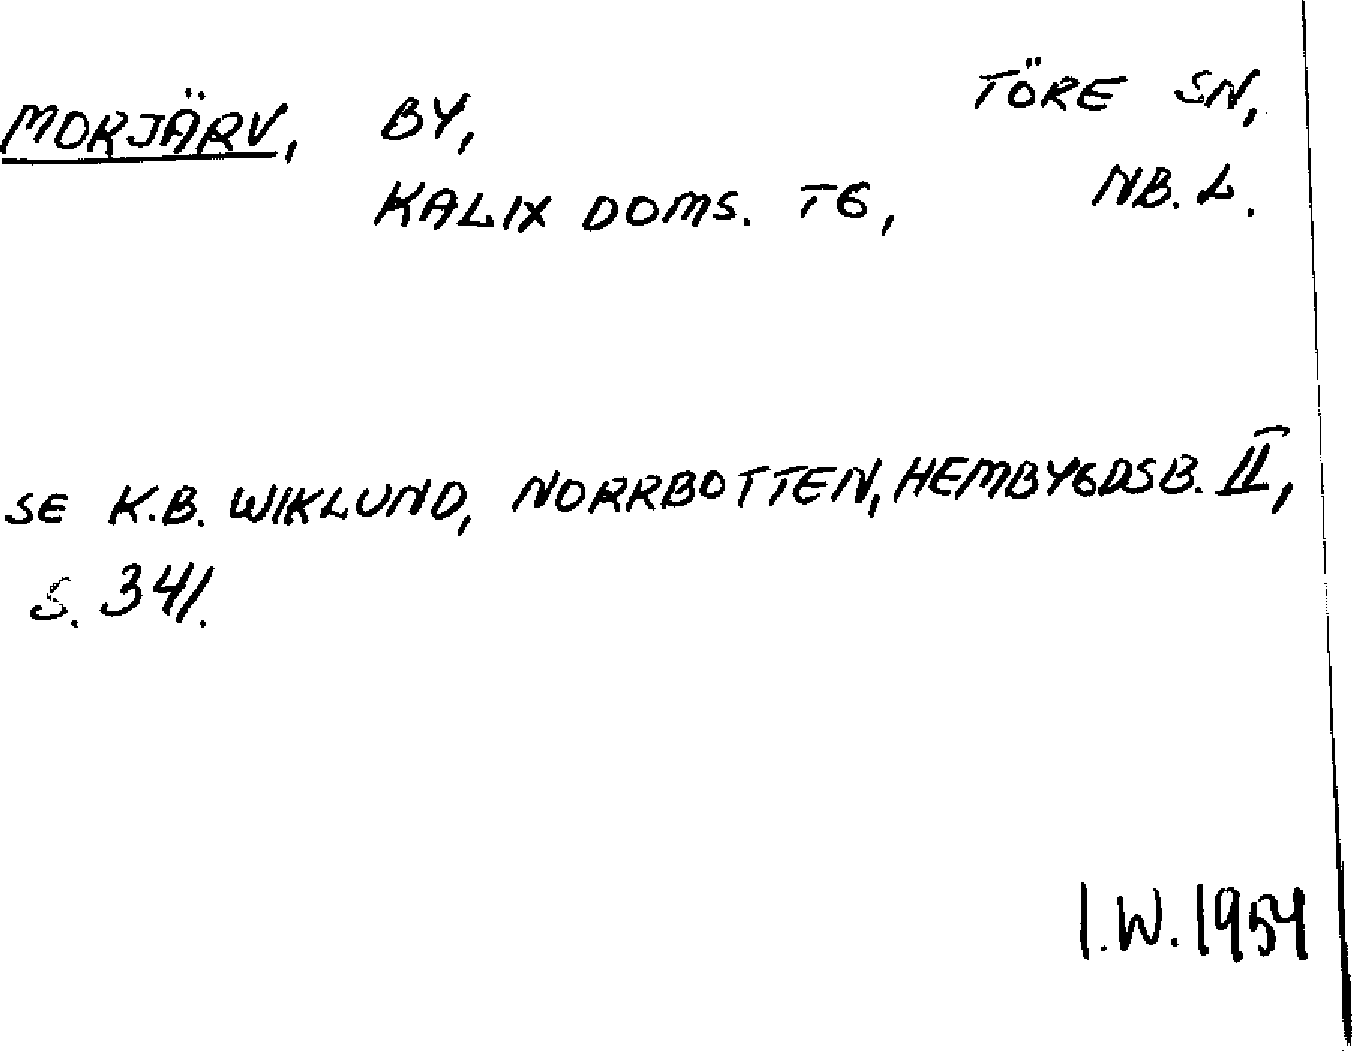 MORJÄRV, BY, TÖRE SN,
KALIX DOMS. TG, NB. L.
SE K.B. WIKLUND, NORRBOTTEN, HEMBYGDSB. II,
S. 341.
I.W. 1954